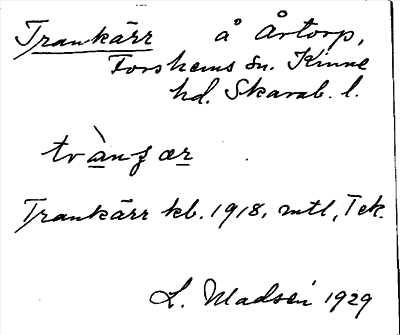 Trankärr å Årtorp,
Forshems sn. Kinne
hd. Skarab. l.
Trankärr kb. 1918, mtl, Tek.
L. Madsén 1929